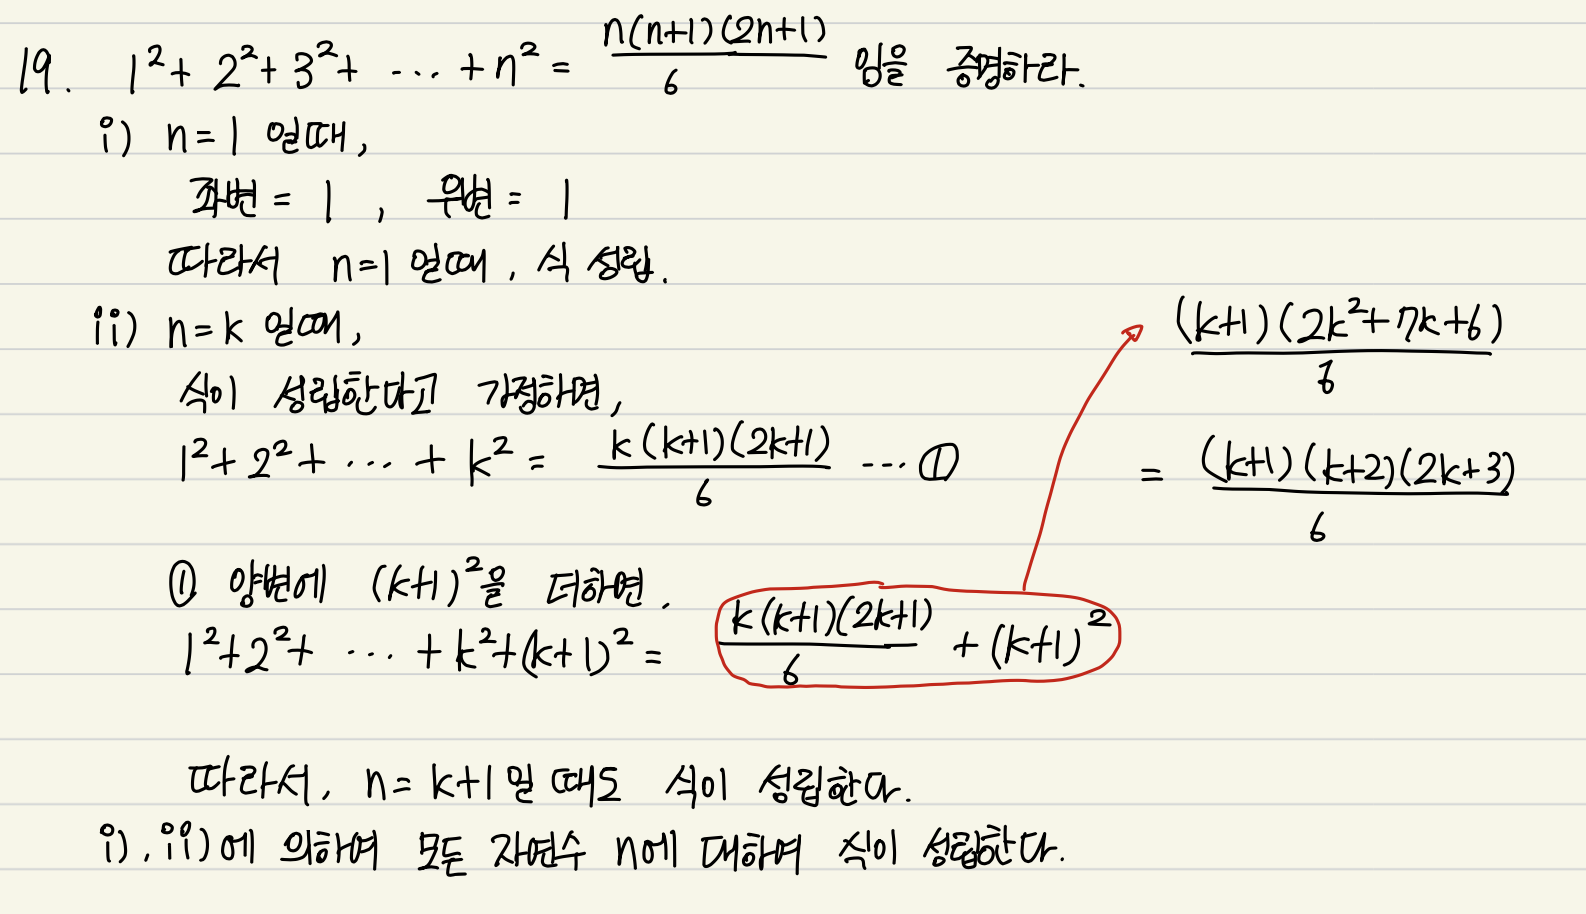 19. 1²+ 2²+ 3²+ ... + n² = n(n+1)(2n+1)/6 임을 증명하라.
i) n=1 일때,
좌변 = 1 , 우변 = 1
따라서 n=1 일때, 식 성립.
ii) n=k 일때,
식이 성립한다고 가정하면,
1²+ 2²+ ... + k² = k(k+1)(2k+1)/6 ... ①
① 양변에 (k+1)²을 더하면,
1²+2²+ ... +k²+(k+1)² = k(k+1)(2k+1)/6 + (k+1)²
(k+1)(2k²+7k+6)/6
= (k+1)(k+2)(2k+3)/6
따라서, n=k+1일 때도 식이 성립한다.
i), ii)에 의하여 모든 자연수 n에 대하여 식이 성립한다.